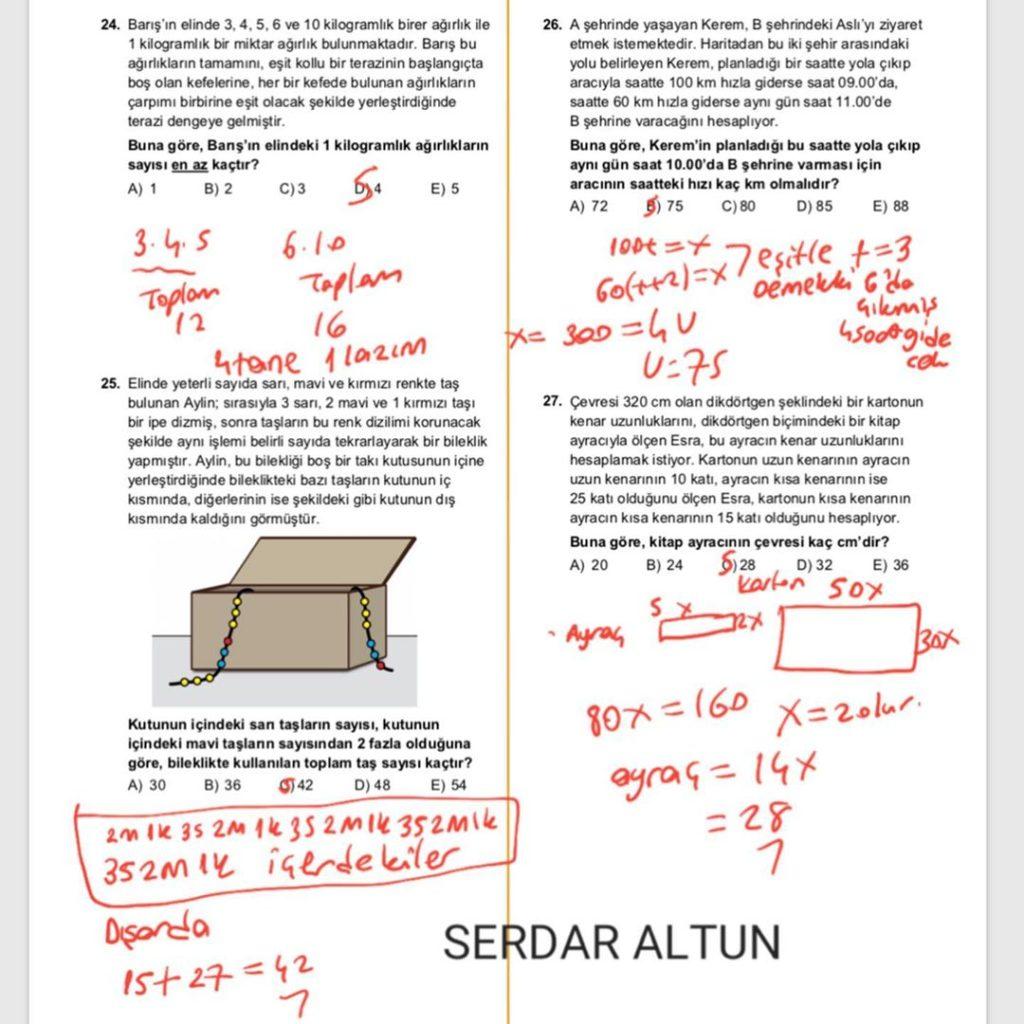 24. Barış'ın elinde 3, 4, 5, 6 ve 10 kilogramlık birer ağırlık ile
1 kilogramlık bir miktar ağırlık bulunmaktadır. Barış bu
ağırlıkların tamamını, eşit kollu bir terazinin başlangıçta
boş olan kefelerine, her bir kefede bulunan ağırlıkların
çarpımı birbirine eşit olacak şekilde yerleştirdiğinde
terazi dengeye gelmiştir.
Buna göre, Barış'ın elindeki 1 kilogramlık ağırlıkların
sayısı en az kaçtır?
A) 1 B) 2 C) 3 D) 4 E) 5
3.4.5 6.10
Toplam Toplam
12 16
4 tane 1 lazım
25. Elinde yeterli sayıda sarı, mavi ve kırmızı renkte taş
bulunan Aylin; sırasıyla 3 sarı, 2 mavi ve 1 kırmızı taşı
bir ipe dizmiş, sonra taşların bu renk dizilimi korunacak
şekilde aynı işlemi belirli sayıda tekrarlayarak bir bileklik
yapmıştır. Aylin, bu bilekliği boş bir takı kutusunun içine
yerleştirdiğinde bileklikteki bazı taşların kutunun iç
kısmında, diğerlerinin ise şekildeki gibi kutunun dış
kısmında kaldığını görmüştür.
Kutunun içindeki sarı taşların sayısı, kutunun
içindeki mavi taşların sayısından 2 fazla olduğuna
göre, bileklikte kullanılan toplam taş sayısı kaçtır?
A) 30 B) 36 C) 42 D) 48 E) 54
2M 1K 3S 2M 1K 3S 2M 1K 3S 2M 1K
3S 2M 1K içerdekiler
Dışarda
15+27=42
26. A şehrinde yaşayan Kerem, B şehrindeki Aslı'yı ziyaret
etmek istemektedir. Haritadan bu iki şehir arasındaki
yolu belirleyen Kerem, planladığı bir saatte yola çıkıp
aracıyla saatte 100 km hızla giderse saat 09.00'da,
saatte 60 km hızla giderse aynı gün saat 11.00'de
B şehrine varacağını hesaplıyor.
Buna göre, Kerem'in planladığı bu saatte yola çıkıp
aynı gün saat 10.00'da B şehrine varması için
aracının saatteki hızı kaç km olmalıdır?
A) 72 B) 75 C) 80 D) 85 E) 88
100t = x
60(t+2) = x eşitle t=3
Demekki 6'da
çıkmış
4 saat gide
cek
x = 300 = 4V
V=75
27. Çevresi 320 cm olan dikdörtgen şeklindeki bir kartonun
kenar uzunluklarını, dikdörtgen biçimindeki bir kitap
ayracıyla ölçen Esra, bu ayracın kenar uzunluklarını
hesaplamak istiyor. Kartonun uzun kenarının ayracın
uzun kenarının 10 katı, ayracın kısa kenarının ise
25 katı olduğunu ölçen Esra, kartonun kısa kenarının
ayracın kısa kenarının 15 katı olduğunu hesaplıyor.
Buna göre, kitap ayracının çevresi kaç cm'dir?
A) 20 B) 24 C) 28 D) 32 E) 36
Karton 50x
Ayraç 5x 2x 30x
80x = 160 x = 2 olur.
ayraç = 14x
= 28
SERDAR ALTUN